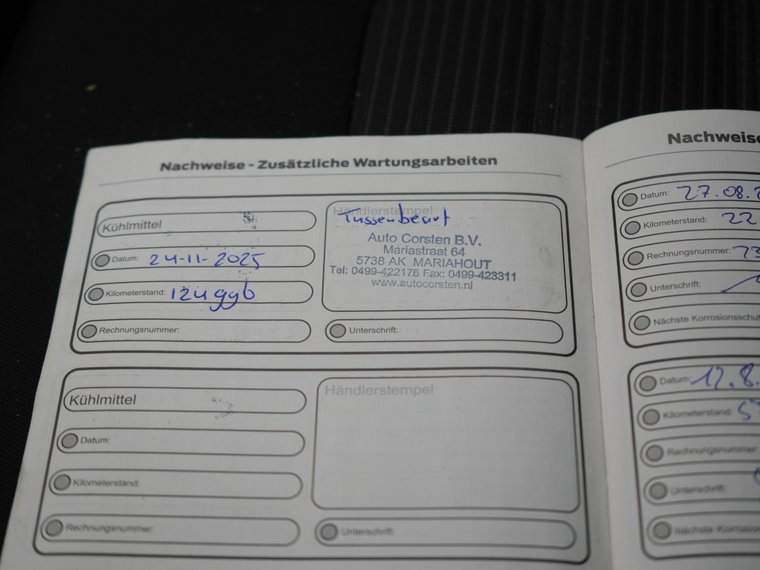 Nachweise - Zusätzliche Wartungsarbeiten
Kühlmittel
Datum: 24-11-2025
Kilometerstand: 124996
Rechnungsnummer:
Händlerstempel
Tussenbeurt
Auto Corsten B.V.
Mariastraat 64
5738 AK MARIAHOUT
Tel: 0499-422176 Fax: 0499-423311
www.autocorsten.nl
Unterschrift:
Kühlmittel
Datum:
Kilometerstand:
Rechnungsnummer:
Händlerstempel
Unterschrift:
Nachweise
Datum: 27.08.
Kilometerstand: 22
Rechnungsnummer:
Unterschrift:
Nächste Korrosionsschut
Datum: 12.8.
Kilometerstand:
Rechnungsnummer:
Unterschrift:
Nächste Korrosion